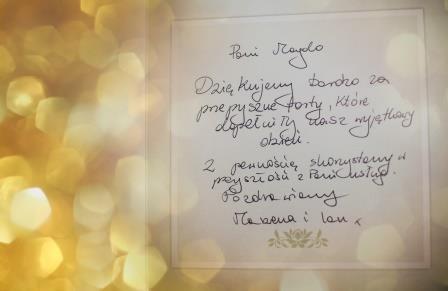 Pani Magdo
Dziękujemy bardzo za
przepyszne torty, które
dopełniły nasz wyjątkowy
dzień.
Z pewnością skorzystamy w
przyszłości z Pani usług.
Pozdrawiamy
Marzena i Jan